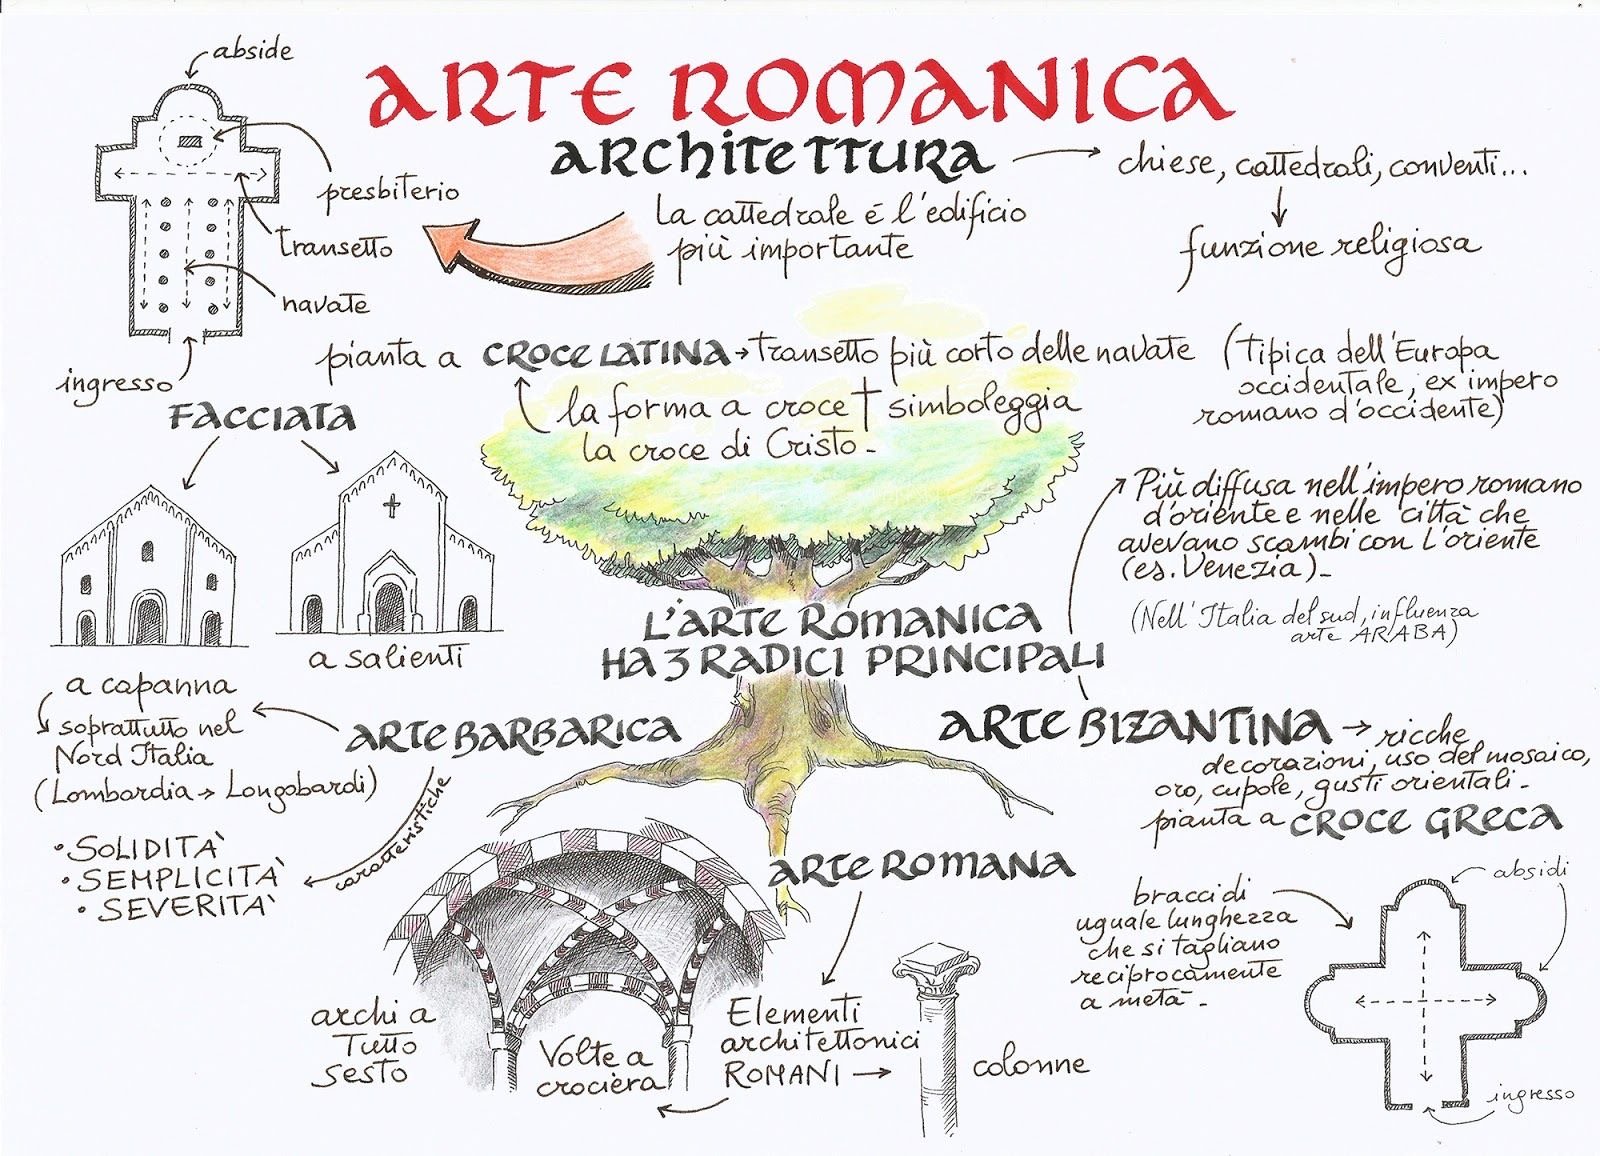 ARTE ROMANICA
ARCHITETTURA
chiese, cattedrali, conventi...
funzione religiosa
La cattedrale é l'edificio
più importante
abside
presbiterio
transetto
navate
ingresso
pianta a CROCE LATINA
transetto più corto delle navate
(Tipica dell'Europa
occidentale, ex impero
romano d'occidente)
la forma a croce † simboleggia
la croce di Cristo.
FACCIATA
a capanna
a salienti
soprattutto nel
Nord Italia
(Lombardia → Longobardi)
L'ARTE ROMANICA
HA 3 RADICI PRINCIPALI
ARTE BARBARICA
caratteristiche
• SOLIDITÀ
• SEMPLICITÀ
• SEVERITÀ
ARTE ROMANA
Elementi
architettonici
ROMANI →
colonne
Volte a
crocièra
archi a
Tutto
sesto
ARTE BIZANTINA
Più diffusa nell'impero romano
d'oriente e nelle città che
avevano scambi con l'oriente
(es. Venezia).
(Nell'Italia del sud, influenza
arte ARABA)
→ ricche
decorazioni, uso del mosaico,
oro, cupole, gusti orientali.
pianta a CROCE GRECA
bracci di
uguale lunghezza
che si tagliano
reciprocamente
a metà.
absidi
ingresso